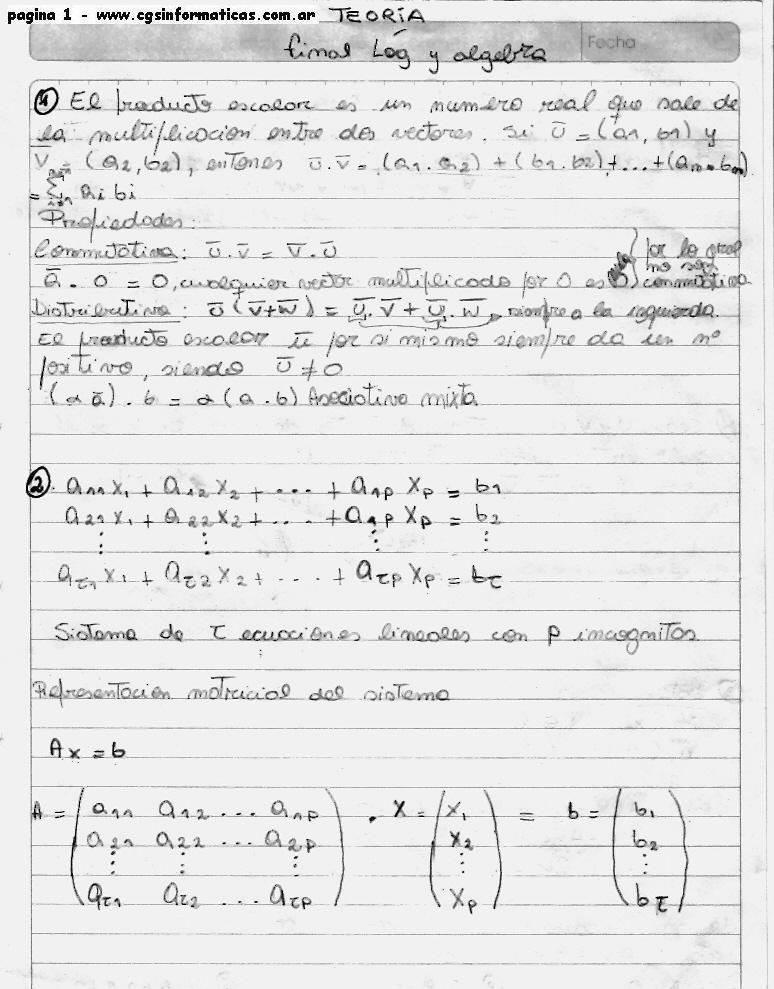 pagina 1 - www.cgsinformaticas.com.ar TEORÍA
final Log y algebra
Fecha
1 El producto escalar es un numero real que sale de
la multiplicacion entre dos vectores. Si ū = (a1, b1) y
v̄ = (a2, b2), entones ū.v̄ = (a1.a2) + (b1.b2)+...+(am.bm)
= Σ ai bi
Propiedades:
Conmutativa: ū.v̄ = v̄.ū } por lo gral no son conmutativa
ā . 0 = 0, cualquier vector multiplicado por 0 es 0
Distributiva: ū(v̄+w̄) = ū.v̄ + ū.w̄, siempre a la izquierda.
El producto escalar ū por si mismo siempre da un nº
positivo, siendo ū ≠ 0
(α ā) . b = α (a . b) Asociativa mixta
2. a11 x1 + a12 x2 + ... + a1p xp = b1
a21 x1 + a22 x2 + ... + a1p xp = b2
⋮ ⋮ ⋮ ⋮
aτ1 x1 + aτ2 x2 + ... + aτp xp = bτ
Sistema de τ ecuaciones lineales con p incognitas
Representacion matricial del sistema
Ax = b
A = ( a11 a12 ... a1p ) . X = ( x1 ) = b = ( b1 )
a21 a22 ... a2p x2 b2
⋮ ⋮ ⋮ ⋮ ⋮
aτ1 aτ2 ... aτp xp bτ